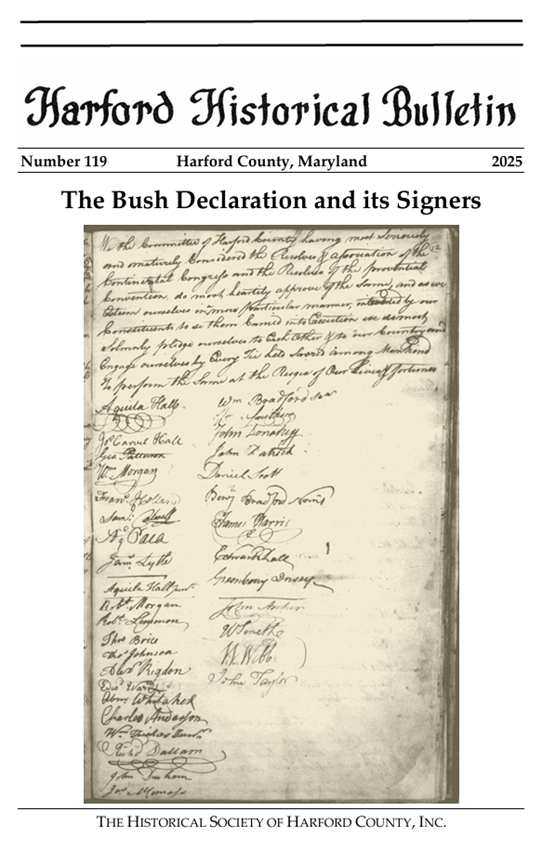 Harford Historical Bulletin
Number 119 Harford County, Maryland 2025
The Bush Declaration and its Signers
We the Committee of Harford County having most Seriously
and maturely Considered the Resolves & association of the
Continental Congress and the Resolves of the provincial
Convention, do most heartily approve of the Same, and as we
Esteem ourselves in a more particular manner, intrusted by our
Constituents to see them Carried into Execution we do most
Solemnly pledge ourselves to Each Other & to our Country and
Engage ourselves by Every Tie held Sacred among Mankind
To perform the Same at the Risque of Our Lives & fortunes
Aquila Hall
Js Carvel Hall
Geo Patterson
Wm Morgan
Saml Calwell
Aq Paca
Jams Lytle
Aquila Hall junr
Robt Morgan
Robt Lemmon
Thos Brice
Thos Johnson
Alexr Rigdon
Edwd Ward
Abrm Whitaker
Charles Anderson
Richd Dallam
John Durham
Wm Bradford senr
John Donahuy
John Patrick
Daniel Scott
Benj Bradford Norris
James Harris
Edward Hall
Greenberry Dorsey
John Archer
W Smith
W Webb
John Taylor
THE HISTORICAL SOCIETY OF HARFORD COUNTY, INC.